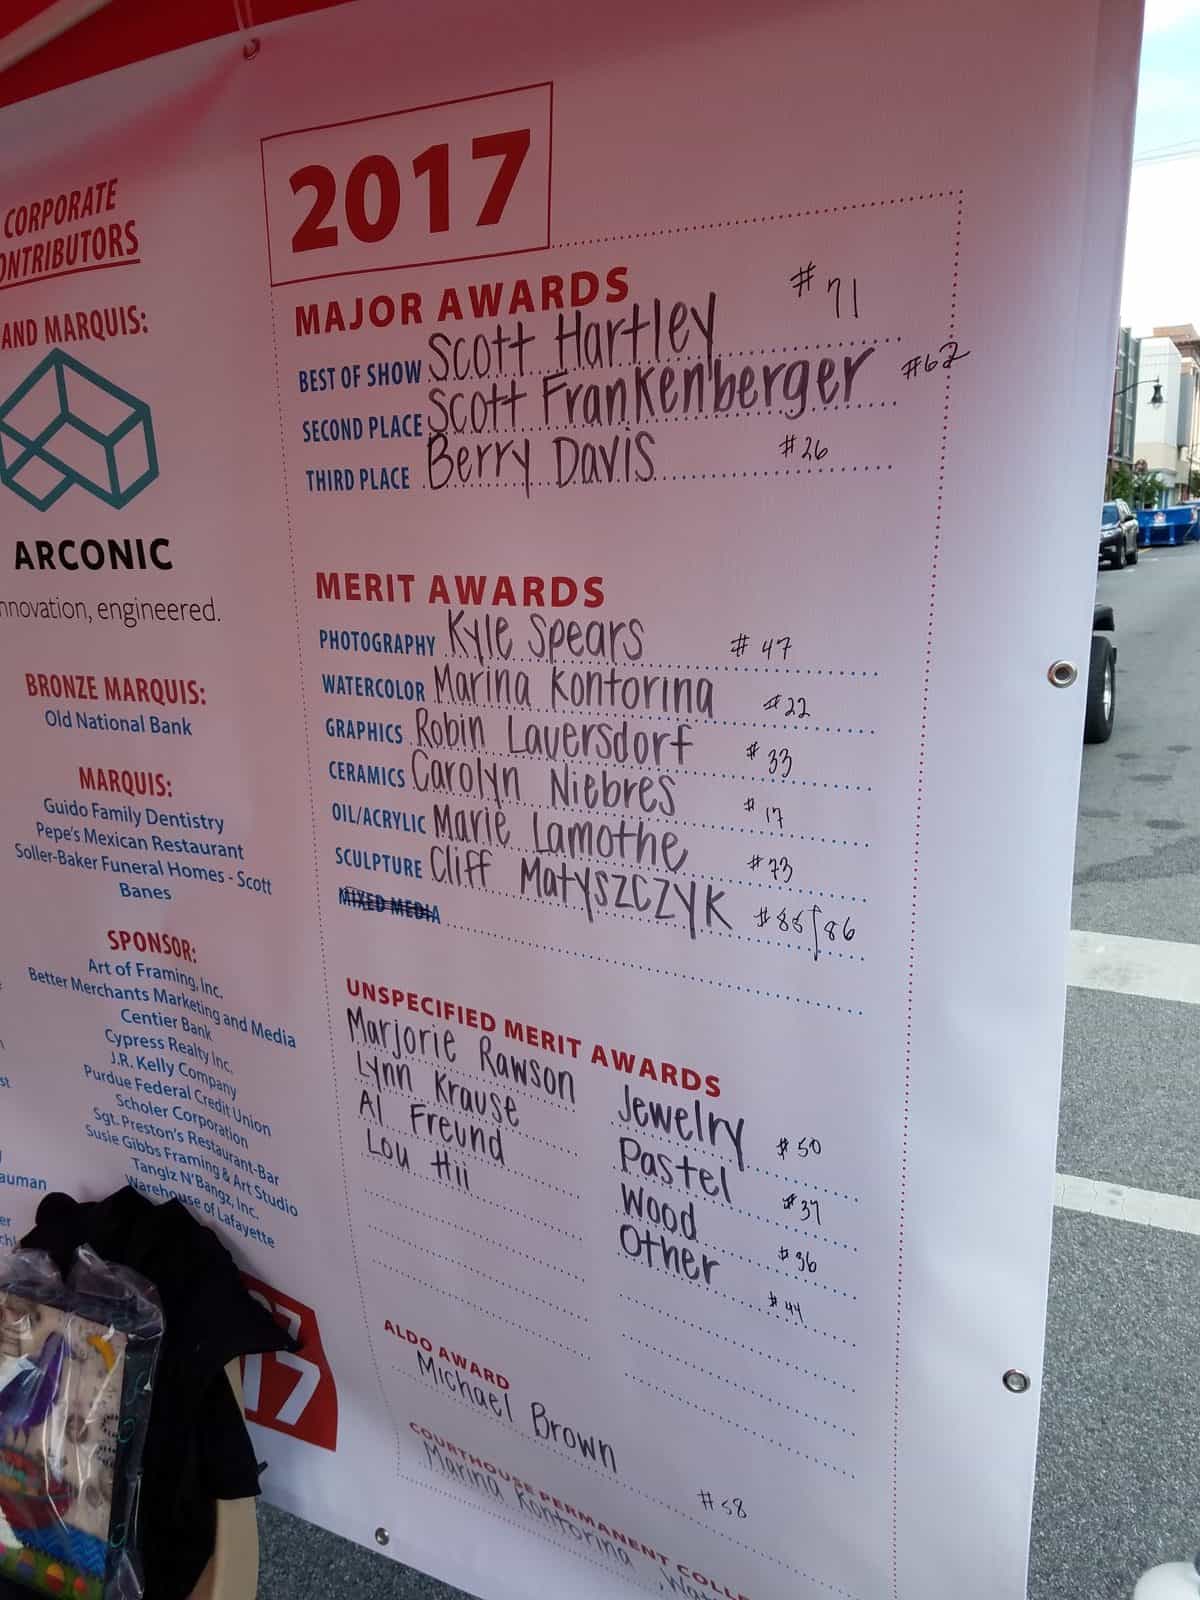 CORPORATE
ONTRIBUTORS
AND MARQUIS:
ARCONIC
nnovation, engineered.
BRONZE MARQUIS:
Old National Bank
MARQUIS:
Guido Family Dentistry
Pepe's Mexican Restaurant
Soller-Baker Funeral Homes - Scott
Banes
SPONSOR:
Art of Framing, Inc.
Better Merchants Marketing and Media
Centier Bank
Cypress Realty Inc.
J.R. Kelly Company
Purdue Federal Credit Union
Scholer Corporation
Sgt. Preston's Restaurant-Bar
Susie Gibbs Framing & Art Studio
Tanglz N'Bangz, Inc.
Warehouse of Lafayette
auman
17
2017
MAJOR AWARDS #71
BEST OF SHOW Scott Hartley
SECOND PLACE Scott Frankenberger #62
THIRD PLACE Berry Davis #26
MERIT AWARDS
PHOTOGRAPHY Kyle Spears #47
WATERCOLOR Marina Kontorina #22
GRAPHICS Robin Lauersdorf #33
CERAMICS Carolyn Niebres #17
OIL/ACRYLIC Marie Lamothe #73
SCULPTURE Cliff Matyszczyk #85/86
MIXED MEDIA
UNSPECIFIED MERIT AWARDS
Marjorie Rawson Jewelry #50
Lynn Krause Pastel #37
Al Freund Wood #36
Lou Hii Other #44
ALDO AWARD
Michael Brown #58
COURTHOUSE PERMANENT COLLE
Marina Kontorina, Wat